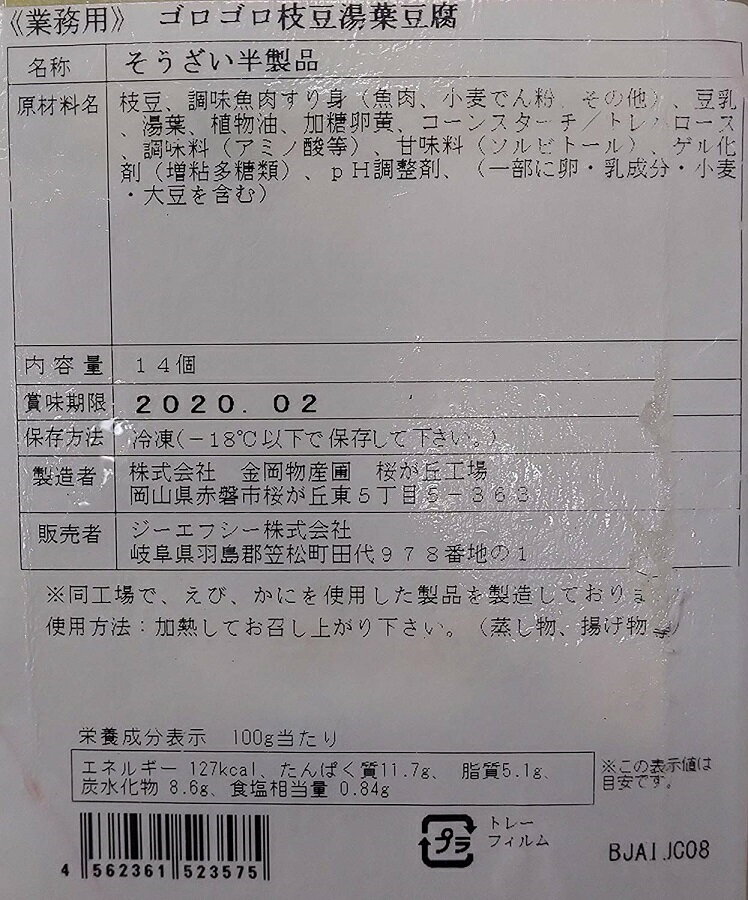 《業務用》 ゴロゴロ枝豆湯葉豆腐
名称 そうざい半製品
原材料名 枝豆、調味魚肉すり身(魚肉、小麦でん粉、その他)、豆乳
、湯葉、植物油、加糖卵黄、コーンスターチ/トレハロース
、調味料(アミノ酸等)、甘味料(ソルビトール)、ゲル化
剤(増粘多糖類)、pH調整剤、(一部に卵・乳成分・小麦
・大豆を含む)
内容量 14個
賞味期限 2020.02
保存方法 冷凍(-18℃以下で保存して下さい。)
製造者 株式会社 金岡物産 桜が丘工場
岡山県赤磐市桜が丘東5丁目5-363
販売者 ジーエフシー株式会社
岐阜県羽島郡笠松町田代978番地の1
※同工場で、えび、かにを使用した製品を製造しておりま
使用方法:加熱してお召し上がり下さい。(蒸し物、揚げ物等)
栄養成分表示 100g当たり
エネルギー 127kcal、たんぱく質11.7g、 脂質5.1g、
炭水化物 8.6g、食塩相当量 0.84g
※この表示値は
目安です。
プラ
トレー
フィルム
4 562361 523575
BJA1JC08